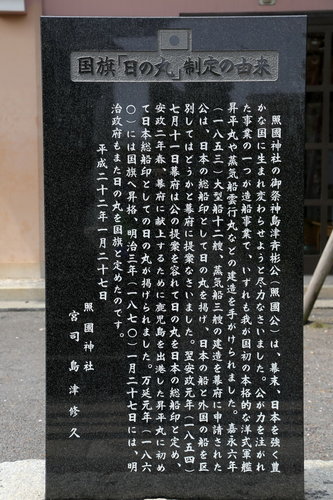 国旗「日の丸」制定の由来
照國神社の御祭神島津斉彬公（照國公）は、幕末、日本を強く豊
かな国に生まれ変わらせようと尽力なさいました。公が力を注がれ
た事業の一つが造船事業で、いずれも我が国初の本格的な洋式軍艦
昇平丸や蒸気船雲行丸などの建造を手がけられました。嘉永六年
（一八五三）大型船十二艘、蒸気船三艘の建造を幕府に申請された
公は、日本の総船印として日の丸を掲げ、日本の船と外国の船を区
別してはどうかと幕府に提案なさいました。翌安政元年（一八五四）
七月十一日幕府は公の提案を容れて日の丸を日本の総船印と定め、
安政二年春、幕府に献上するために鹿児島を出港した昇平丸に初め
て日本総船印としての日の丸が掲げられました。万延元年（一八六
〇）には国旗へ昇格、明治三年（一八七〇）一月二十七日には、明
治政府もまた日の丸を国旗と定めたのです。
平成二十二年一月二十七日
照國神社
宮司 島津修久